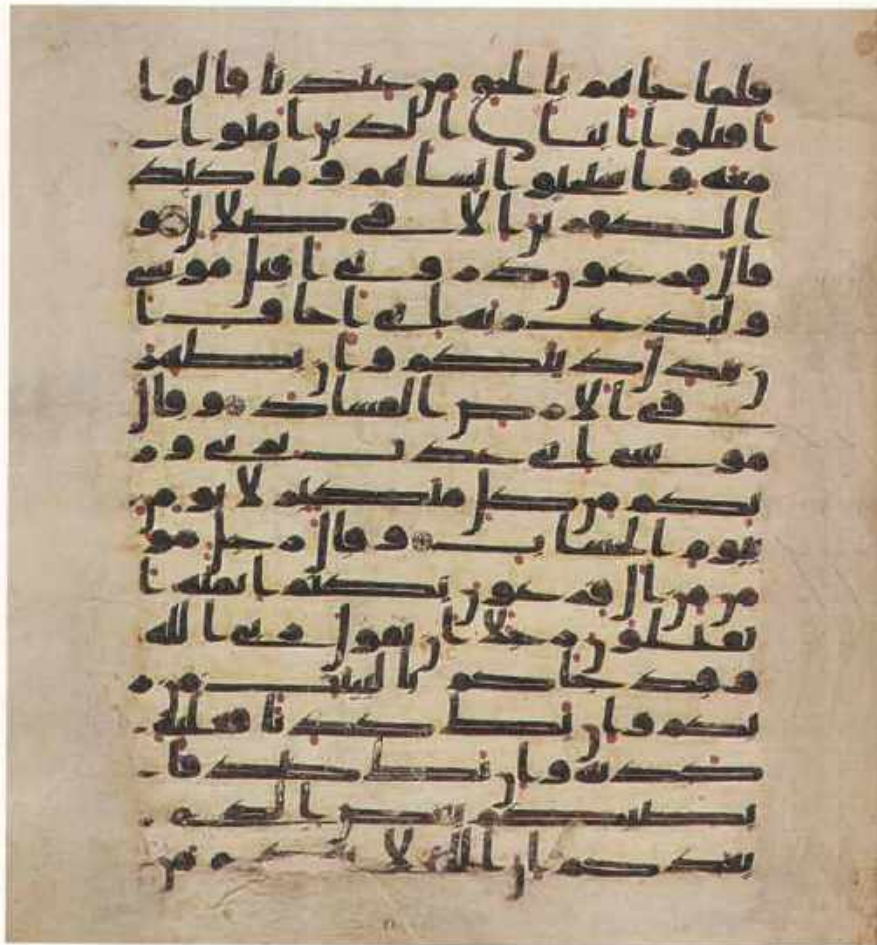 فلما جاهم بالحق من عندنا قالوا
اقتلوا ابنا الذين امنوا
معه واستحيوا نساهم وما كيد
الكفرين الا في ضلل و
قال فرعون ذروني اقتل موسى
وليدع ربه اني اخاف ا
ن يبدل دينكم وان يظهر
في الارض الفساد وقال
موسى اني عذت بربي ور
بكم من كل متكبر لا يومن
بيوم الحساب وقال رجل مو
من من ال فرعون يكتم ايمنه ا
تقتلون رجلا ان يقول ربي الله
وقد جاكم بالبينت من ر
بكم وان يك كذبا فعليه
كذبه وان يك صدقا
يصبكم بعض الذي
يعدكم ان الله لا يهدي من